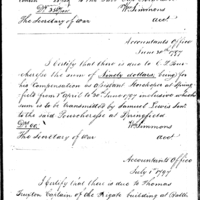 Dls 350/100. Wm Simmons
The Secretary of War acct.
Accountants Office
June 30th 1797
I Certify that there is due to
the sum of Ninety dollars, being for
his Compensation as Assistant at Spring
field from 1st April to 30th June 1797 inclusive which
sum is to be transmitted by Samuel
to the said at Springfield
Dols 90. Wm Simmons
The Secretary of War acct.
Accountants Office
July 5th 1797
I Certify that there is due to Thomas
Truxton Captain of the Frigate building at Balti